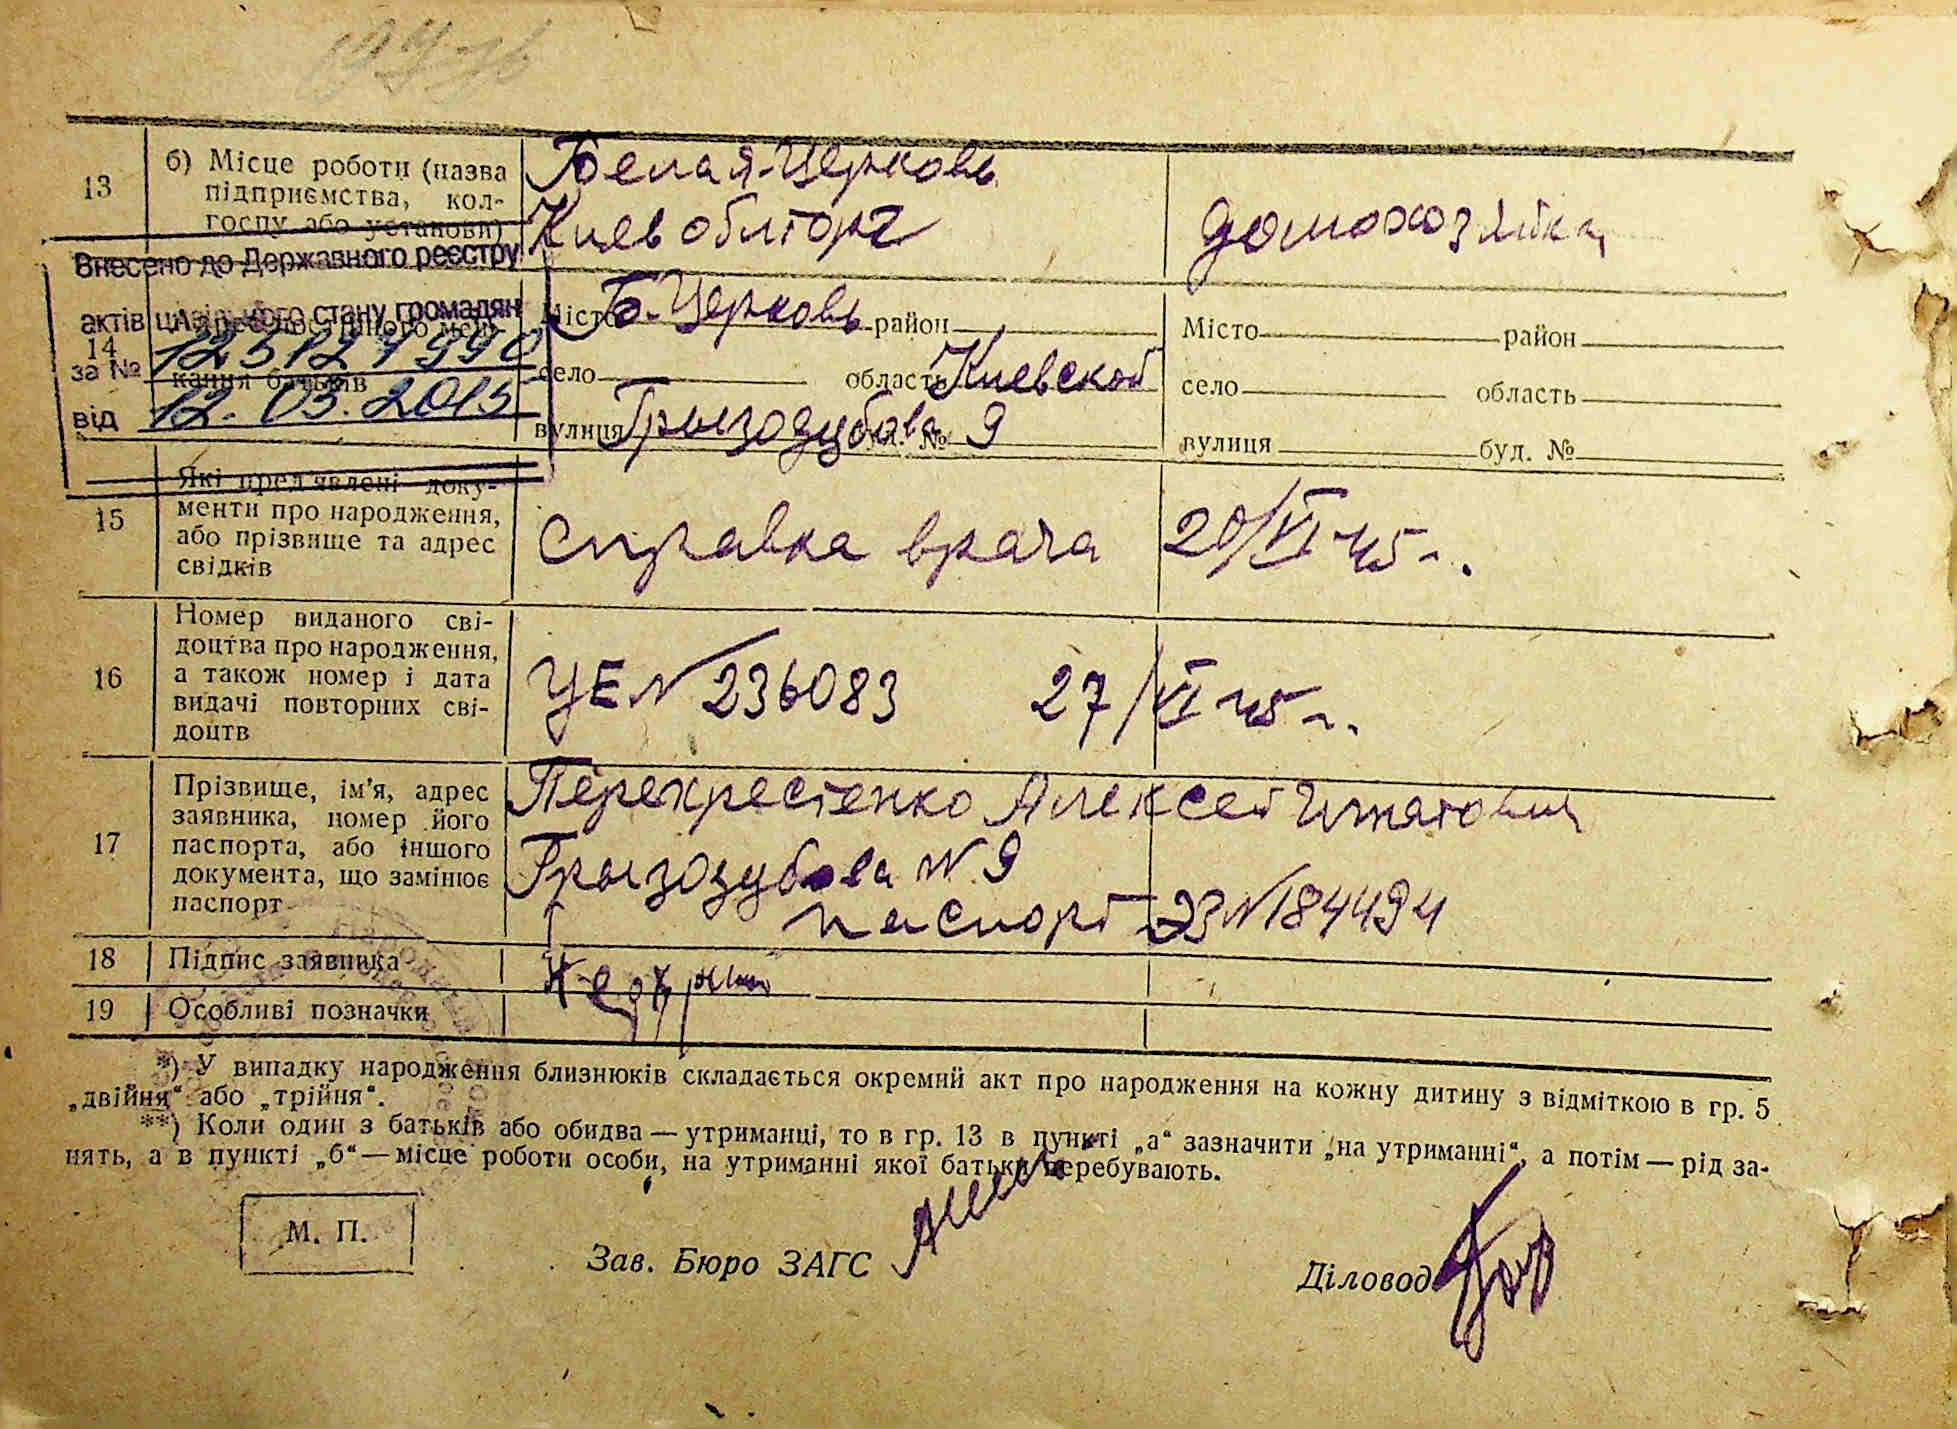 13
б) Місце роботи (назва
підприємства, кол-
госпу або установи)
Белая-Церковь
Киевоблторг
домохозяйка
Внесено до Державного реєстру
актів цивільного стану громадян
за № 12512799
від 12.03.2015
14
кання батьків
Місто Б-Церковь район
село область Киевской
вулиця Грызодубова № 9
Місто район
село область
вулиця буд. №
15
Які пред'явлені доку-
менти про народження,
або прізвище та адрес
свідків
справка врача 20/VI-45 г.
16
Номер виданого сві-
доцтва про народження,
а також номер і дата
видачі повторних сві-
доцтв
УЕ № 236083 27/VI 45 г.
17
Прізвище, ім'я, адрес
заявника, номер його
паспорта, або іншого
документа, що замінює
паспорт
Перехрестенко Алексей Игнатович
Грызодубова № 9
паспорт № 184494
18 Підпис заявника
19 Особливі позначки
*) У випадку народження близнюків складається окремий акт про народження на кожну дитину з відміткою в гр. 5
„двійня“ або „трійня“.
**) Коли один з батьків або обидва — утриманці, то в гр. 13 в пункті „а“ зазначити „на утриманні“, а потім — рід за-
нять, а в пункті „б“ — місце роботи особи, на утриманні якої батьки перебувають.
М. П.
Зав. Бюро ЗАГС
Діловод